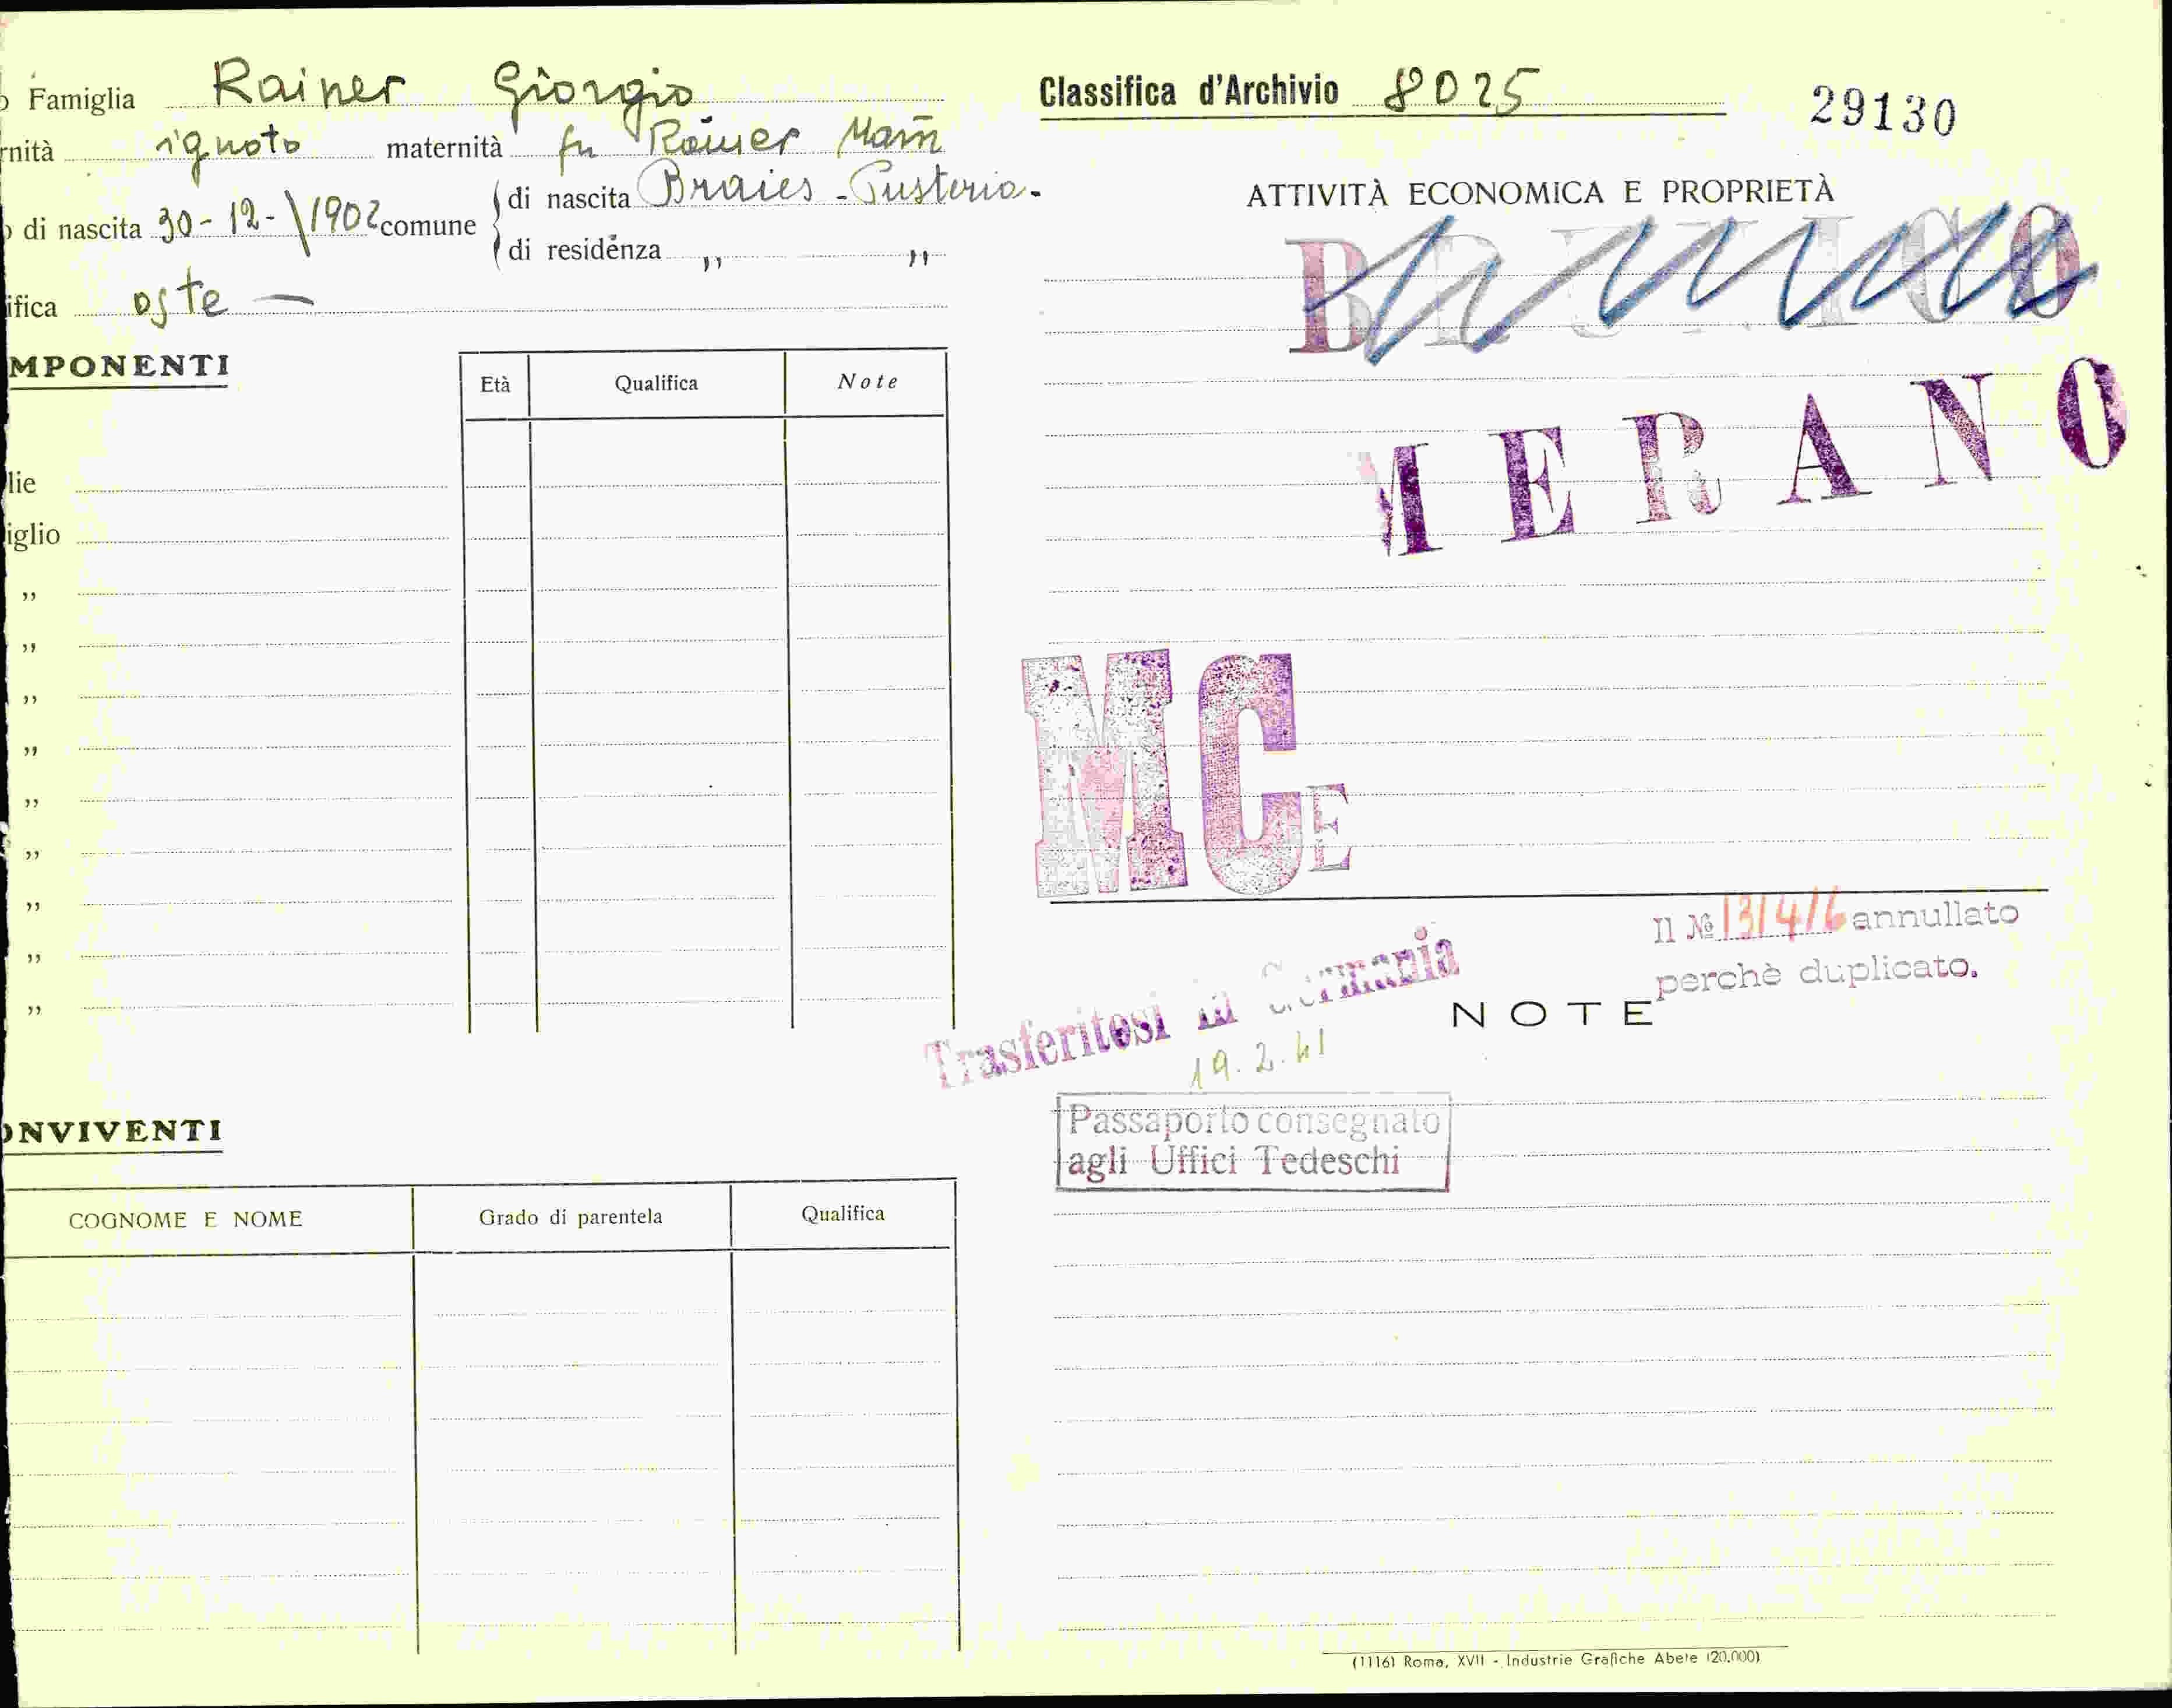 Famiglia Rainer Giorgio
rnità ignoto maternità fu Rainer
di nascita 30-12-1902 comune di nascita Braies - Pusteria -
di residenza " "
ifica oste —
MPONENTI
Età Qualifica Note
lie
iglio
"
"
"
"
"
"
"
"
"
ONVIVENTI
COGNOME E NOME Grado di parentela Qualifica
Classifica d'Archivio 8025
29130
ATTIVITÀ ECONOMICA E PROPRIETÀ
BRUNICO
MERANO
MCE
Il № 13/4/6 annullato
perchè duplicato.
Trasferitosi in Germania
19.2.41
NOTE
Passaporto consegnato
agli Uffici Tedeschi
(11161 Roma, XVII - Industrie Grafiche Abete (20.000)